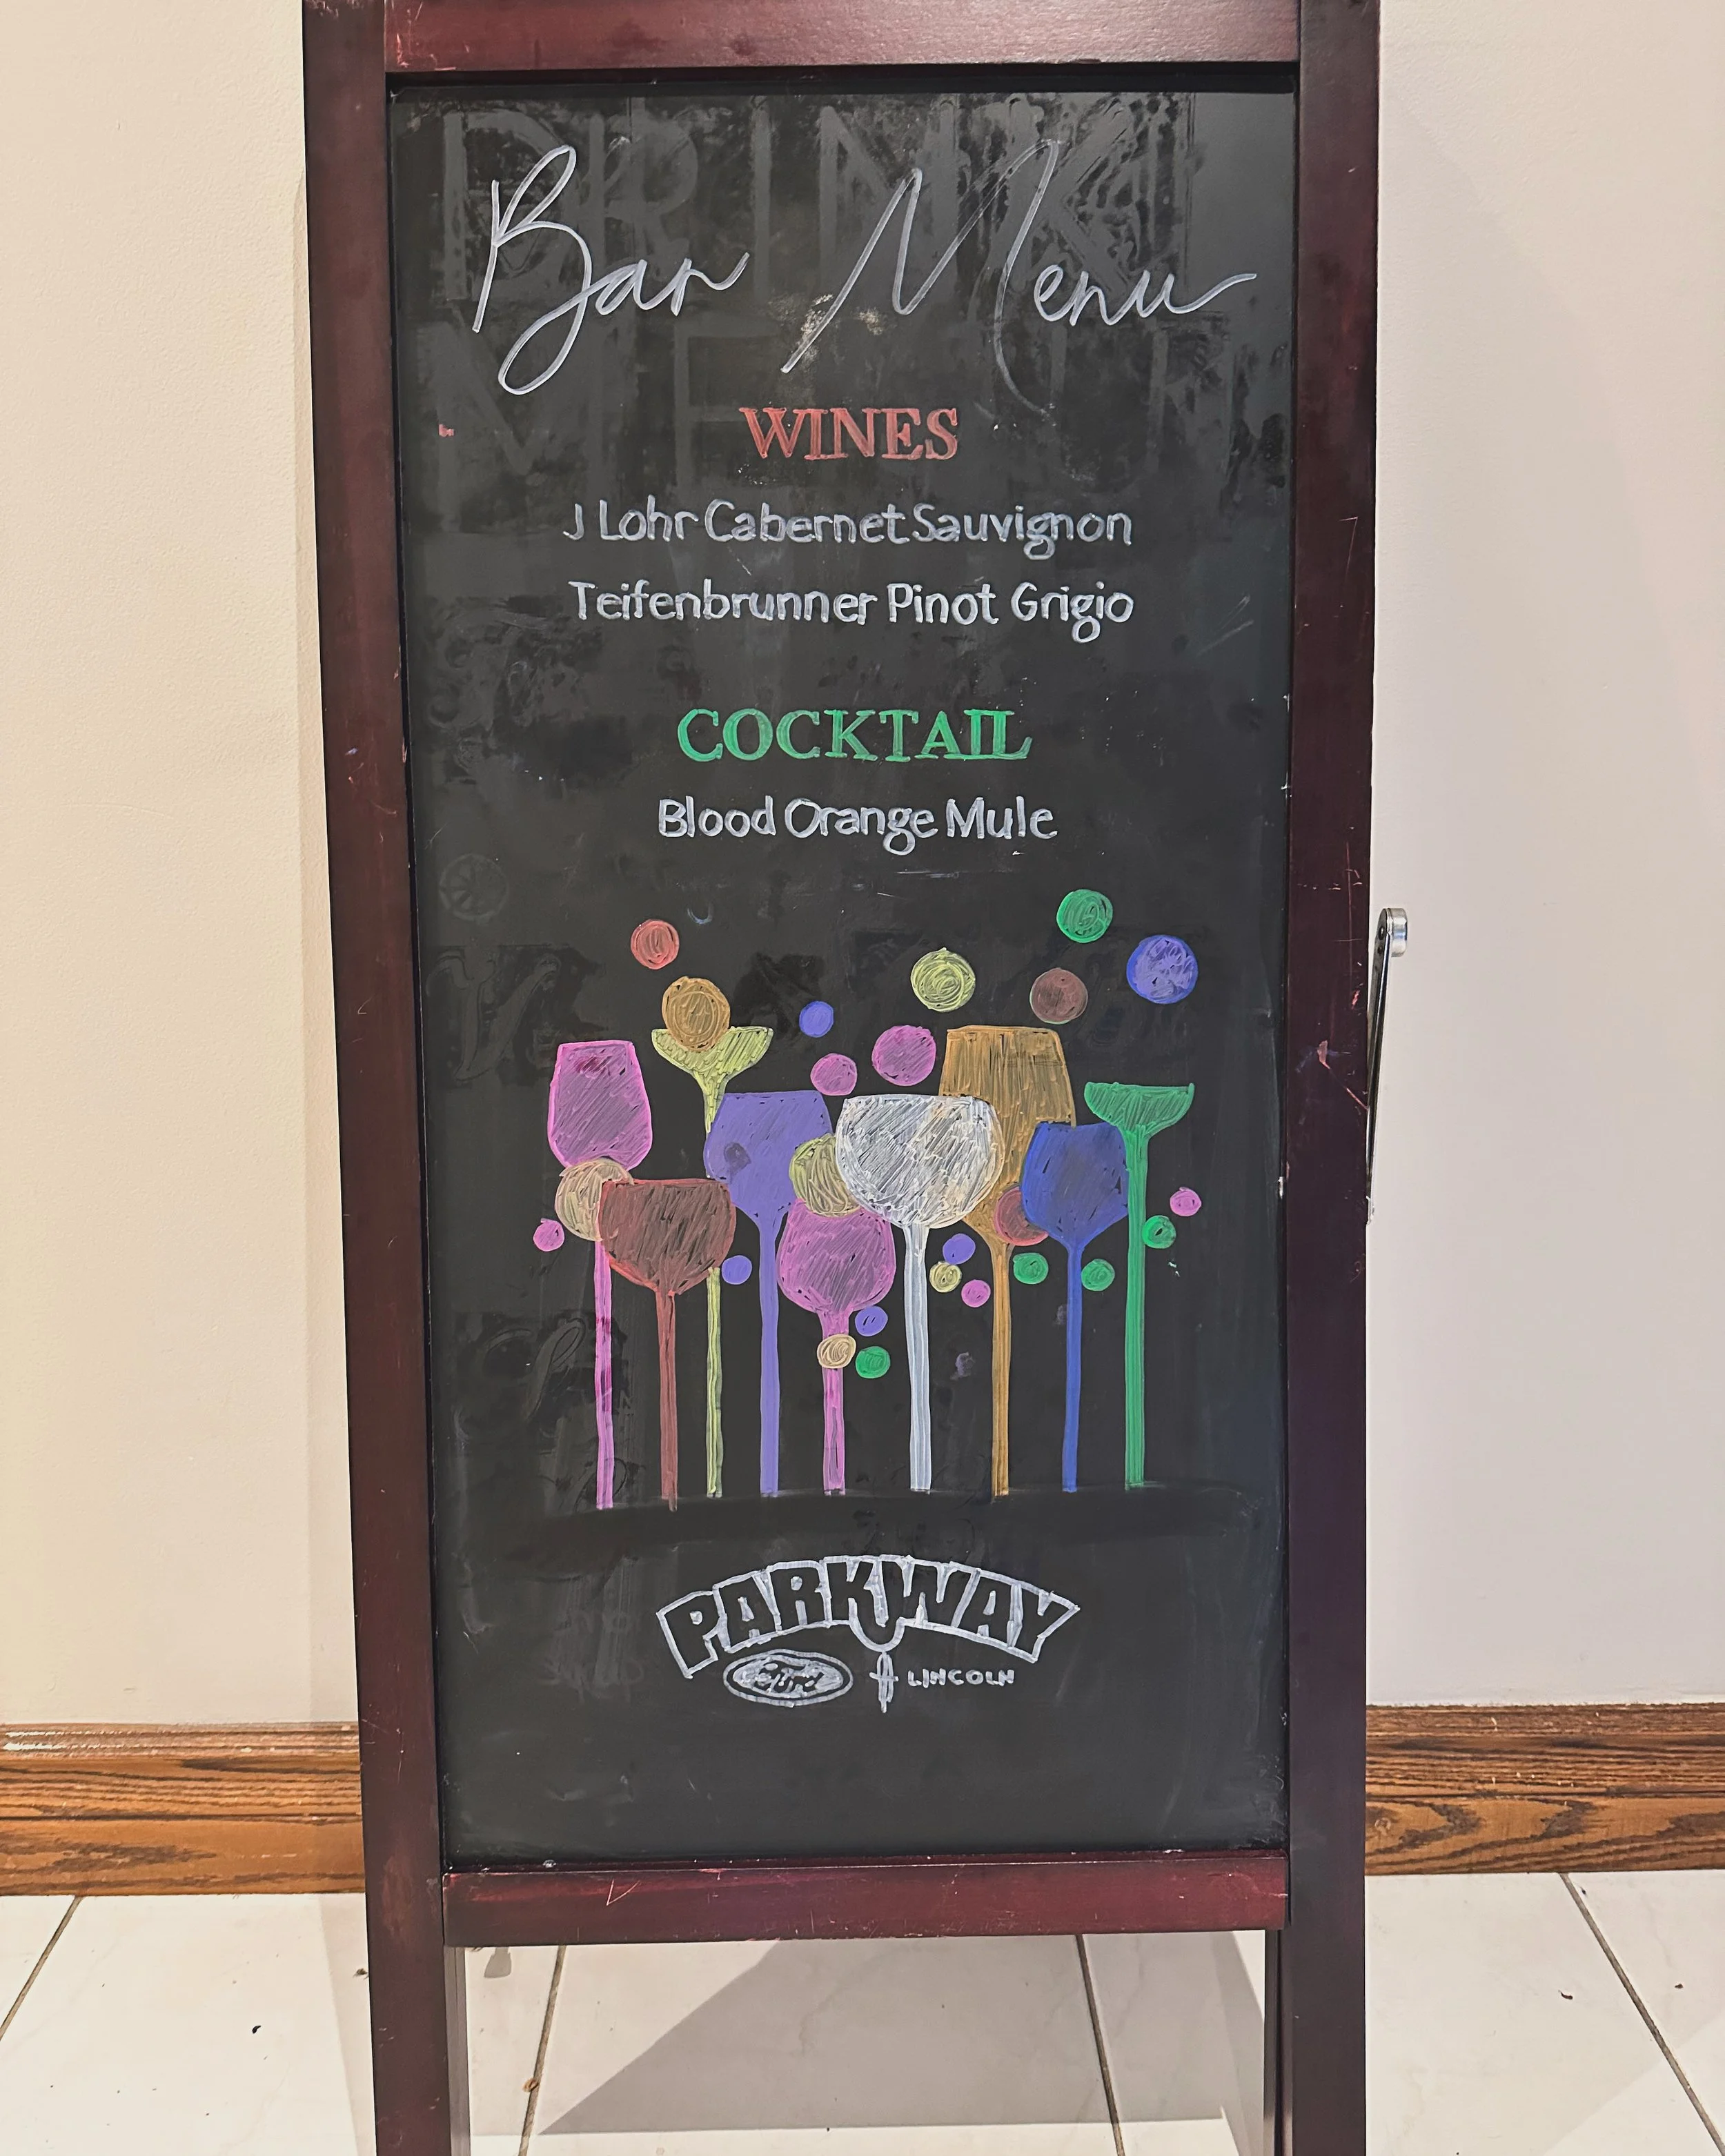 Bar Menu
WINES
J Lohr Cabernet Sauvignon
Teifenbrunner Pinot Grigio
COCKTAIL
Blood Orange Mule
PARKWAY
Ford LINCOLN